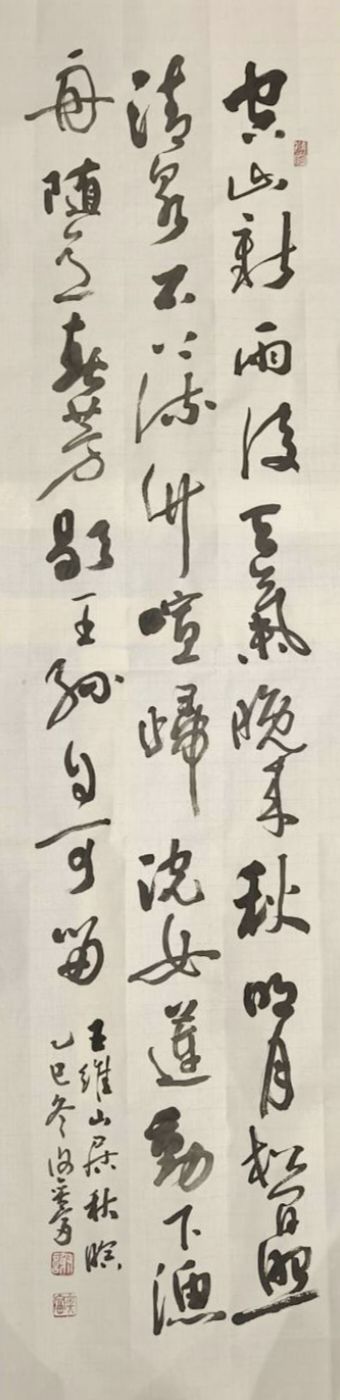 空山新雨後天氣晚来秋明月松間照
清泉石上流竹喧歸浣女蓮動下漁
舟随意春芳歇王孫自可留
王維山居秋暝
乙巳冬